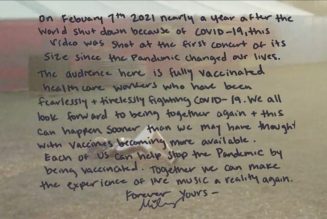 On Febuary 7th 2021 nearly a year after the
World shut down because of COVID-19, this
Video was shot at the first concert of its
size since the Pandemic changed our lives.
The audience here is fully vaccinated
health care workers who have been
fearlessly + tirelessly fighting COVID-19. We all
look forward to being together again + this
can happen sooner than we may have thought
with Vaccines becoming more available.
Each of us can help stop the Pandemic by
being vaccinated. Together we can make
the experience of live music a reality again.
Forever Yours -